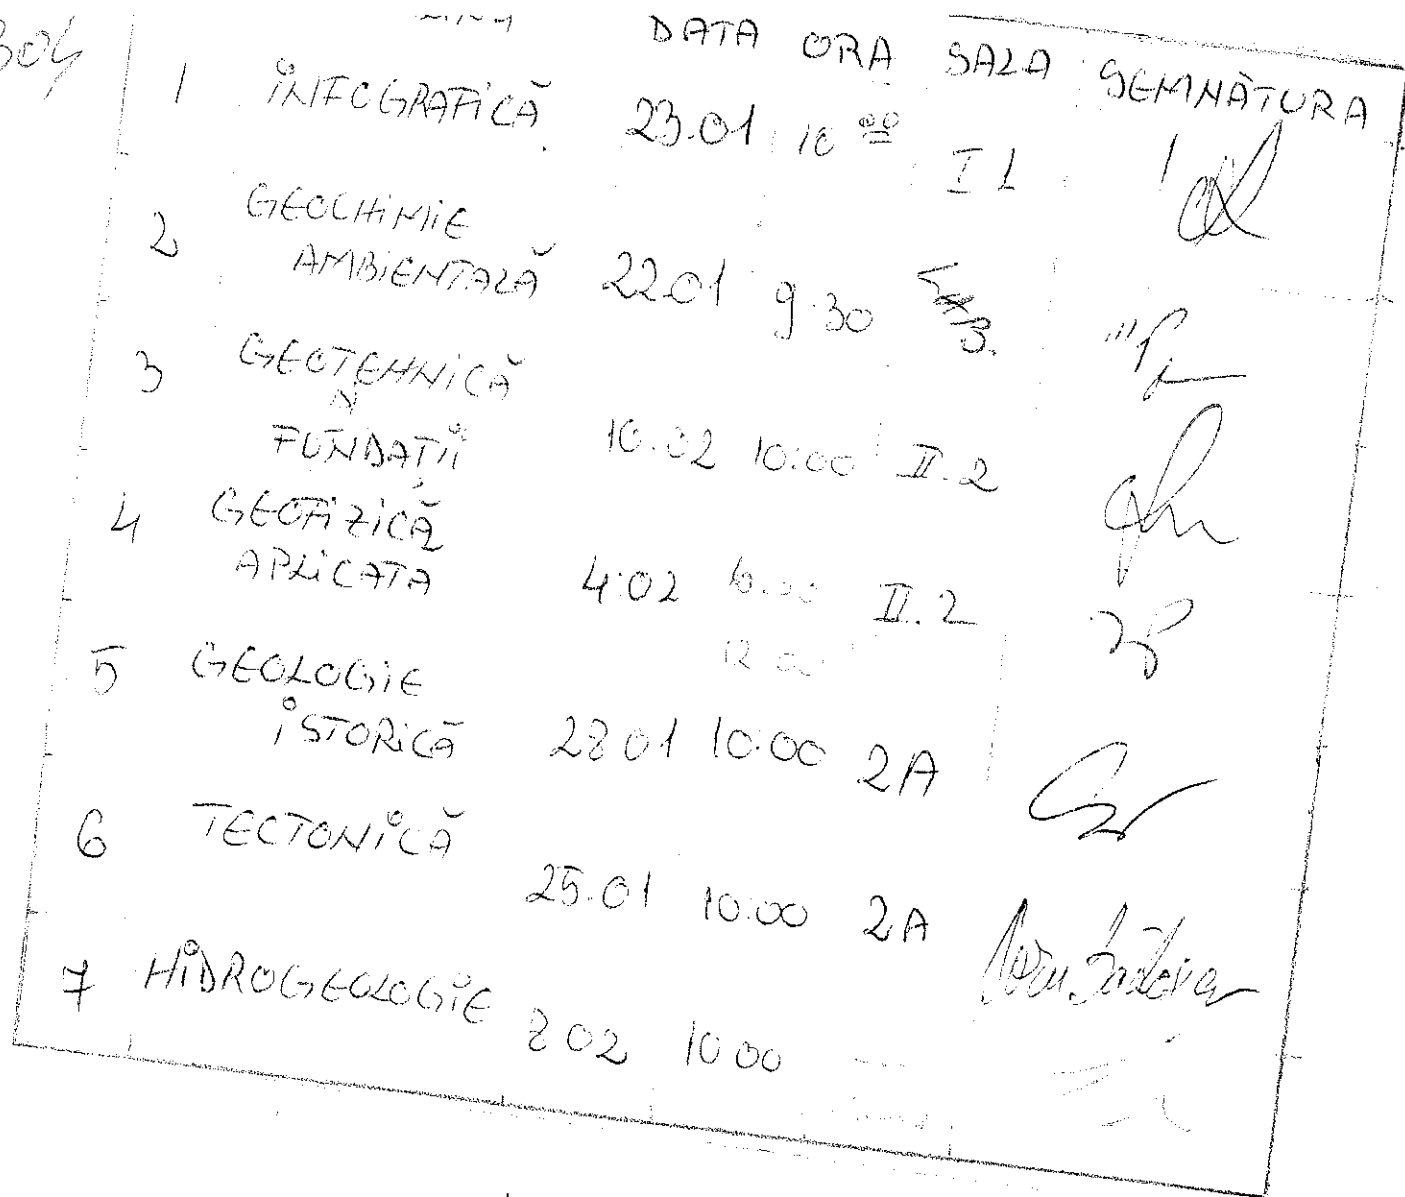 304
DATA ORA SALA SEMNĂTURA
1 INFOGRAFICĂ 23.01 10 00 I 1
2 GEOCHIMIE
AMBIENTALĂ 22.01 9.30 LAB.
3 GEOTEHNICĂ
FUNDAȚII 10.02 10:00 II.2
4 GEOFIZICĂ
APLICATA 4.02 II.2
12 00
5 GEOLOGIE
ISTORICĂ 28 01 10:00 2A
6 TECTONICĂ
25.01 10:00 2A
7 HIDROGEOLOGIE 8 02 10 00